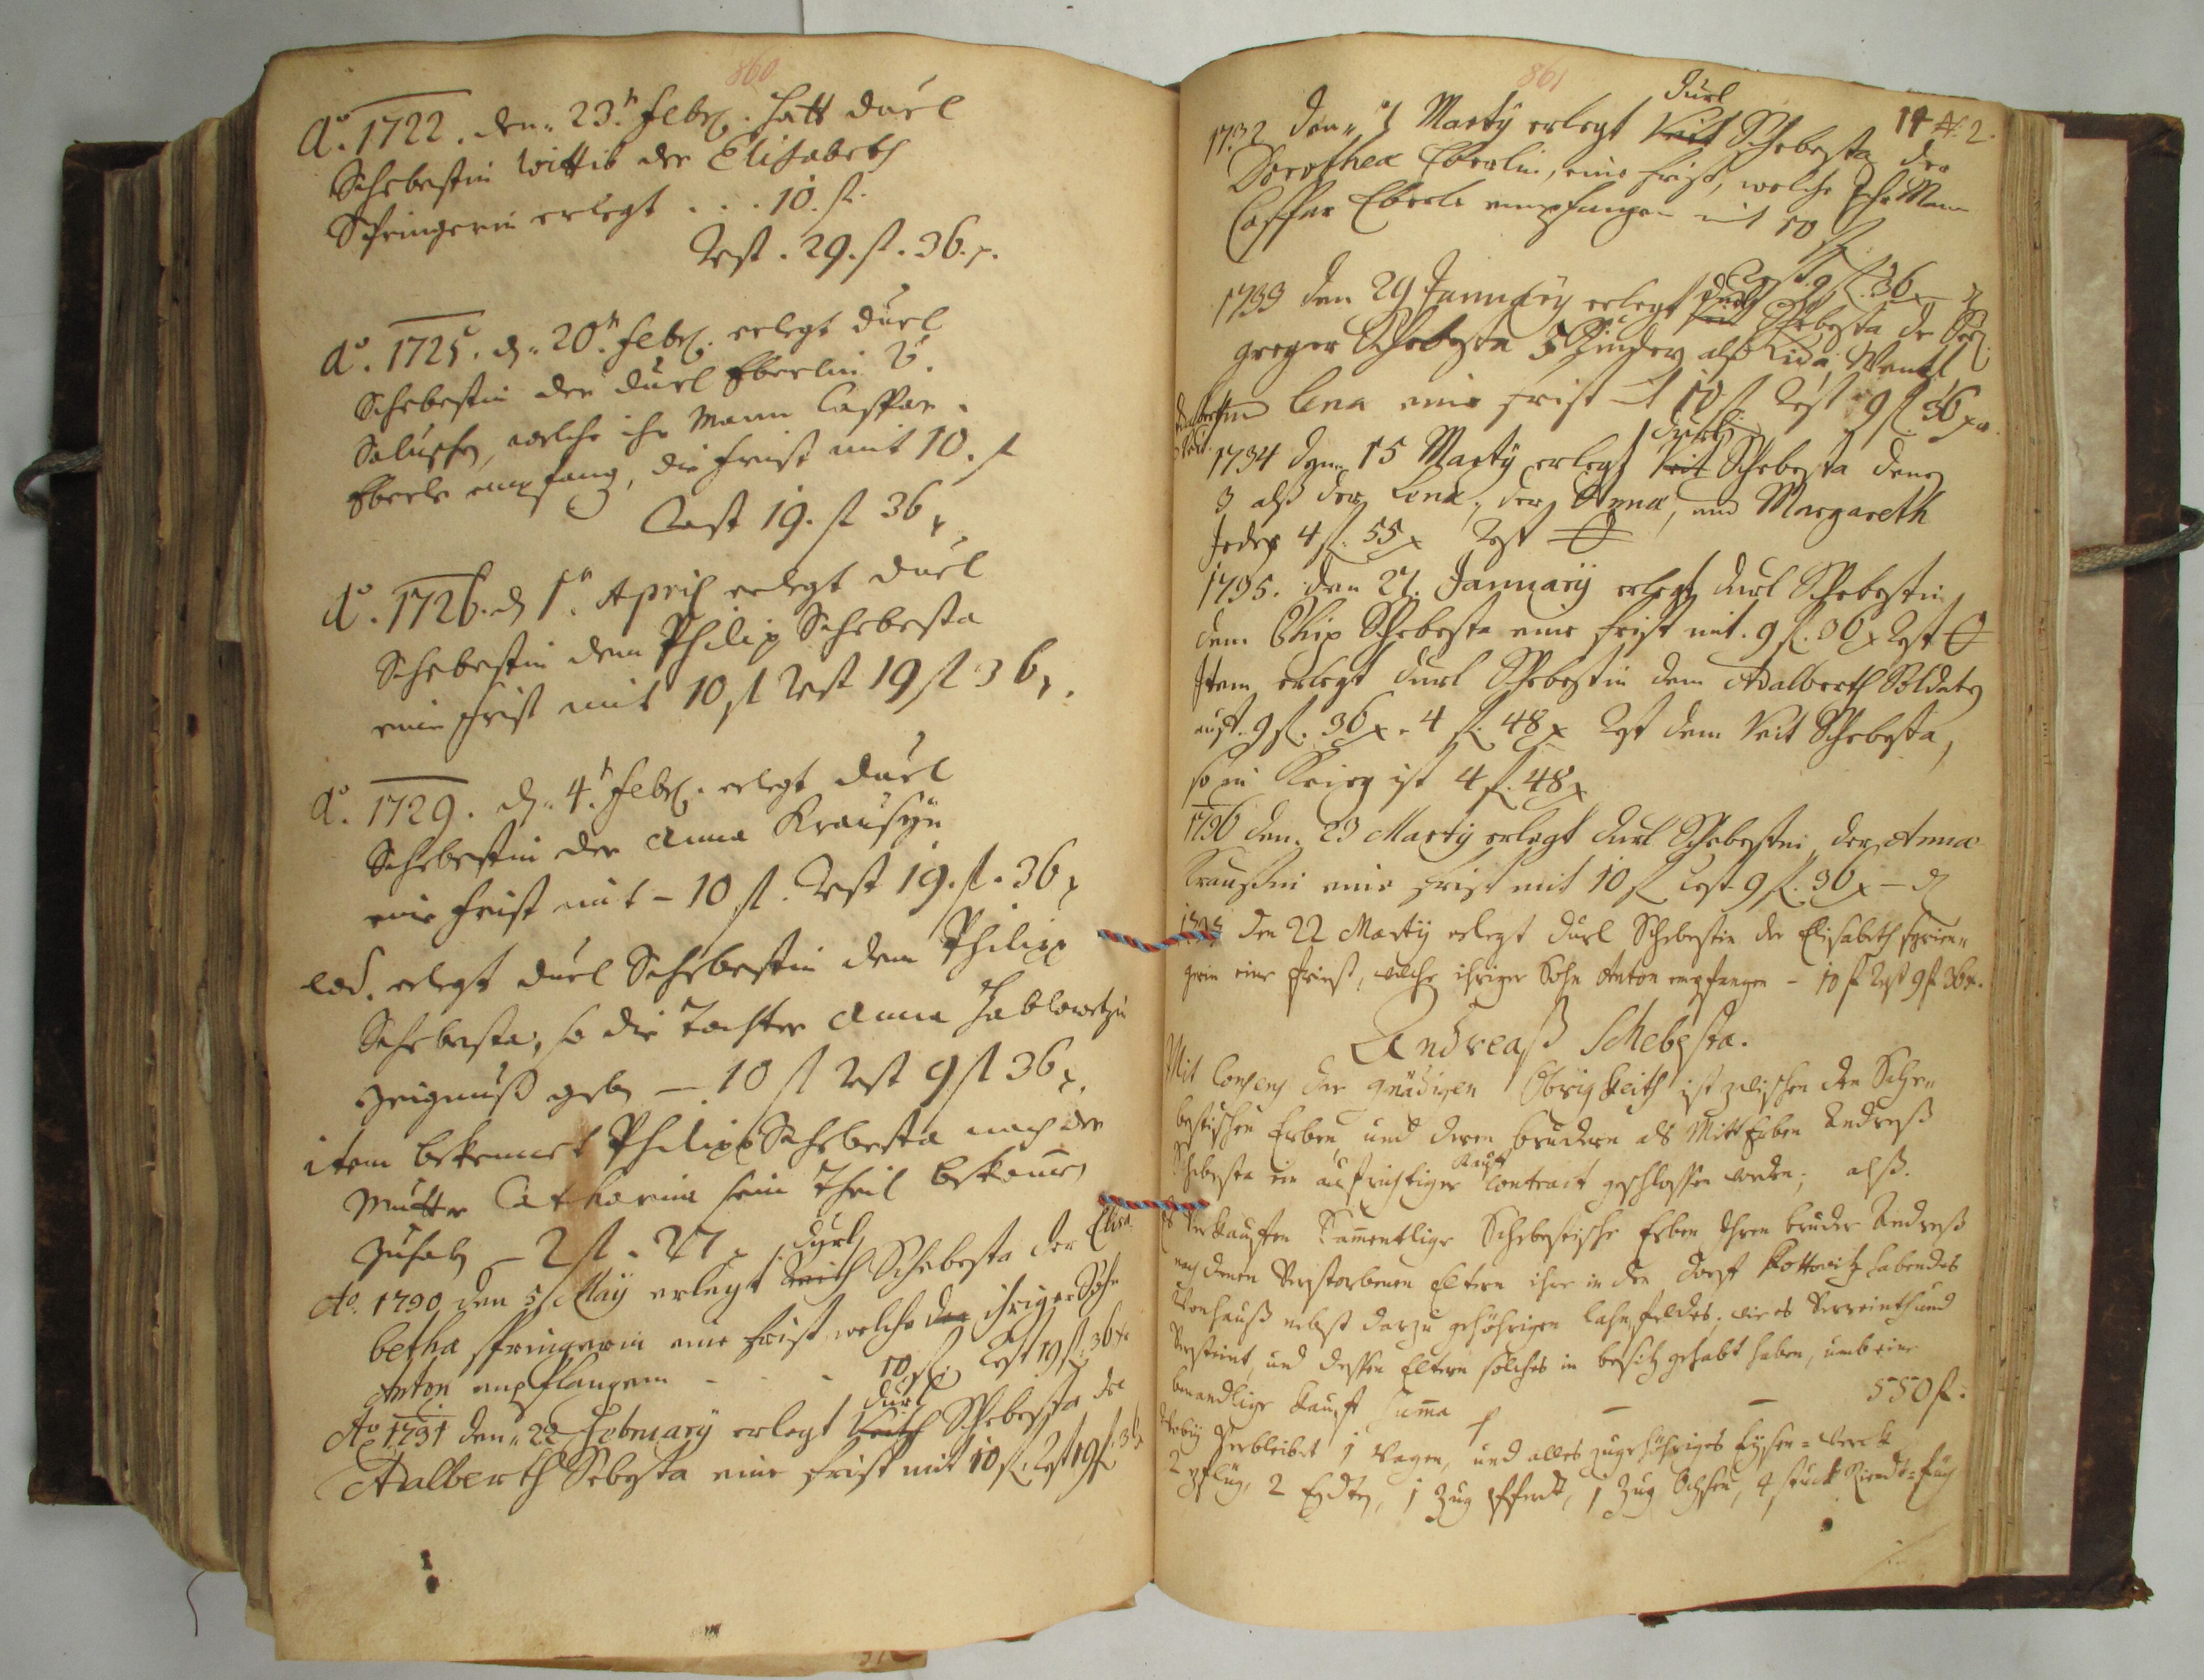 860
Aō. 1722. den 23.tn Febr. hatt Durl
Schebestin wittib der Elisabeth
Springerin erlegt . . . 10. fl.
Rest. 29. fl. 36. x.
Aō. 1725. d. 20.tn Febr. erlegt Durl
Schebestin der Durl Eberlin
welche ihr Mann Caspar
Eberle empfang, die frist mit 10. fl
Rest 19. fl 36 x
Aō. 1726. d 1.tn April erlegt Durl
Schebestin dem Philip Schebesta
eine frist mit 10 fl Rest 19 fl 36 x.
Aō. 1729. d. 4.tn Febr. erlegt Durl
Schebestin der Anna Krausin
eine frist mit – 10 fl. Rest 19. fl. 36 x
eod. erlegt Durl Schebestin dem Philipp
Schebesta, so die Tochter Anna
Zeignuß geb – 10 fl Rest 9 fl 36 x.
item bekennet Philipp Schebesta nach der
Mutter Catharina sein Theil bekomen
zuhab – 2 fl. 27 x
Durl
Aō. 1730 den 5 Maÿ erlegt Veith Schebesta der Elisa
betha springerin eine frist welche der ihriger Sohn
Anton empflangem - - - 10 fl. Rest 19 fl. 36 x
Durl
Aō 1731 den 22 February erlegt Veith Schebesta de
Adalberth Sebesta eine frist mit 10 fl. Rest 19 fl. 36
861
14 N: 2.
Durl
1732 den Martÿ erlegt Veit Schebesta der
Dorothea Eberlin, eine frist, welche Ihr Mann
Caspar Eberle empfangen mit 10 fl
Rest 9 fl. 36 x
Durl
1733 den 29 January erlegt Veit Schebesta
greger Schebesta 5 Kinder als
Lena eine frist 10 fl Rest 9 fl 36 x
Durl
1734 den 15 Martÿ erlegt Veit Schebesta denen
3 alß der Lena, der Anna, und Margareth
Jeder 4 fl. 55 x Rest
1735. den 27. January erlegt Durl Schebestin
dem Schebesta eine frist mit. 9 fl. 36 x Rest
Item erlegt Durl Schebestin dem Adalberth Soldaten
auff. 9 fl. 36 x. 4 fl. 48 x Rest dem Veit Schebesta,
so in Krieg ist 4 fl. 48 x
1736 den. 23 Martÿ erlegt Durl Schebestin der Anna
Kraußin eine frist mit 10 fl Rest 9 fl. 36 x –
den 22 Martÿ erlegt Durl Schebestin der Elisabeth sprin„
gerin eine frist, welche ihriger Sohn Anton empfangen – 10 fl Rest 9 fl 36 x.
Andreaß Schebesta.
Mit Consens der gnädigen Obrigkeith ist zwischen den Sche„
bestischen Erben, und deren brudern als Mitt Erben Andreß
Kauff
Schebesta ein aufrichtiger Contract geschlossen worden; alß.
Es verkauffen Samentlige Schebestische Erben Ihren bruder Andreß
nach denen Verstorbenen Eltern ihr in den dorf Kottwitz habendes
Wonhauß nebst darzu gehörigen lahn feldes, wie es Verreinth und
Versteint, und dessen Eltern solches in besitz gehabt haben, umb eine
benandlige kauff Suma – – 550 fl.
Wobey Verbleibet 1 Wagen, und alles zugehöriges Eysen=Werck
2 pflüg, 2 Egdten, 1 Zug Pferdt, 1 Zug Ochsen, 4 stuck Riendt=